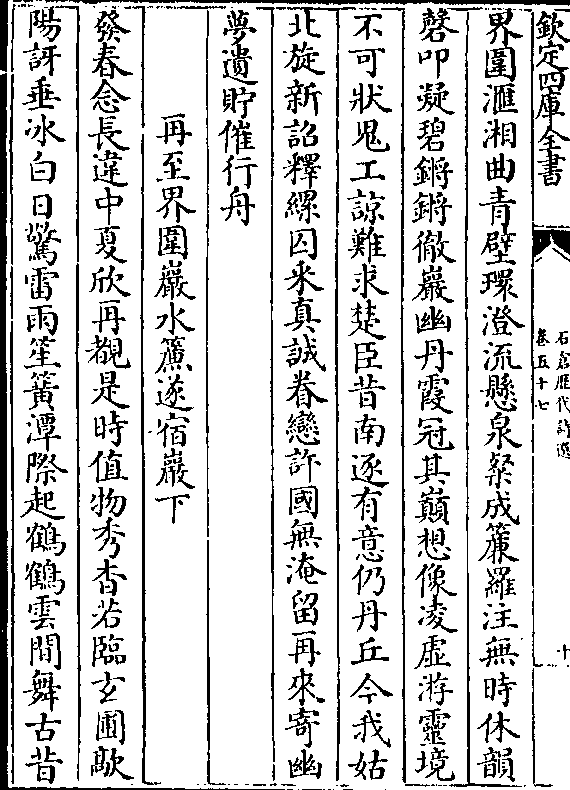 欽定四庫全書
石倉歷代詩選
卷五十七
十
界圍滙湘曲青壁環澄流懸泉粲成簾羅注無時休韻
磬叩凝碧鏘鏘徹巖幽丹霞冠其巔想像凌虛游靈境
不可狀鬼工諒難求楚臣昔南逐有意仍丹丘今我姑
北旋新詔釋縲囚采真誠眷戀許國無淹留再來寄幽
夢遺貯催行舟
再至界圍巖水簾遂宿巖下
發春念長違中夏欣再覩是時值物秀杳若臨玄圃欹
陽訝垂冰白日驚雷雨笙簧潭際起鸛鶴雲間舞古昔